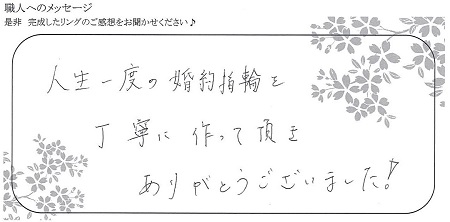 職人へのメッセージ
是非 完成したリングのご感想をお聞かせください♪
人生一度の婚約指輪を
丁寧に作って頂き
ありがとうございました!